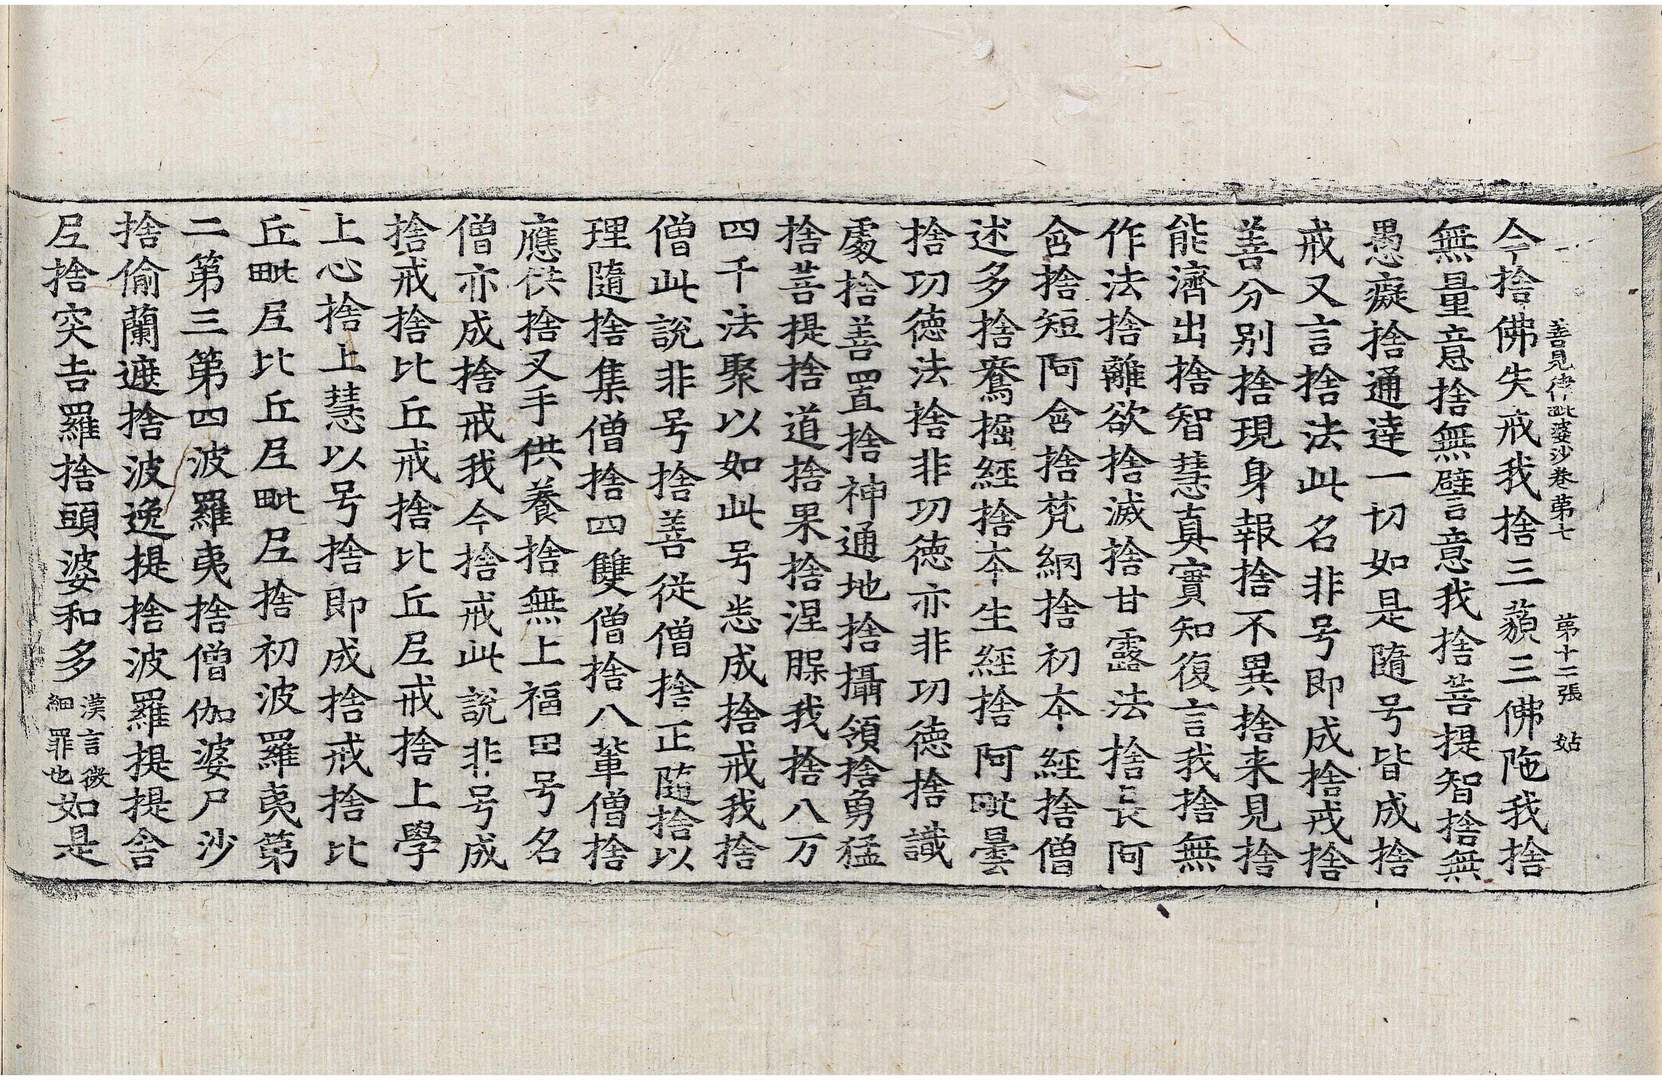 善見律毗婆沙卷第七　第十二張　姑
今捨佛失戒我捨三藐三佛陁我捨
無量意捨無譬言意我捨菩提智捨無
愚癡捨通達一切如是隨号皆成捨
戒又言捨法此名非号即成捨戒捨
善分别捨現身報捨不異捨来見捨
能濟出捨智慧真實知復言我捨無
作法捨離欲捨滅捨甘露法捨長阿
含捨短阿含捨梵網捨初本經捨僧
述多捨鴦掘經捨本生經捨阿毗曇
捨功德法捨非功德亦非功德捨識
處捨善置捨神通地捨攝領捨勇猛
捨菩提捨道捨果捨涅腂我捨八万
四千法聚以如此号悉成捨戒我捨
僧此說非号捨善從僧捨正隨捨以
理隨捨集僧捨四雙僧捨八輩僧捨
應供捨叉手供養捨無上福田号名
僧亦成捨戒我今捨戒此說非号成
捨戒捨比丘戒捨比丘尼戒捨上學
上心捨上慧以号捨即成捨戒捨比
丘毗尼比丘尼毗尼捨初波羅夷第
二第三第四波羅夷捨僧伽婆尸沙
捨偷蘭遮捨波逸提捨波羅提提舍
尼捨突吉羅捨頭婆和多漢言微細罪也如是